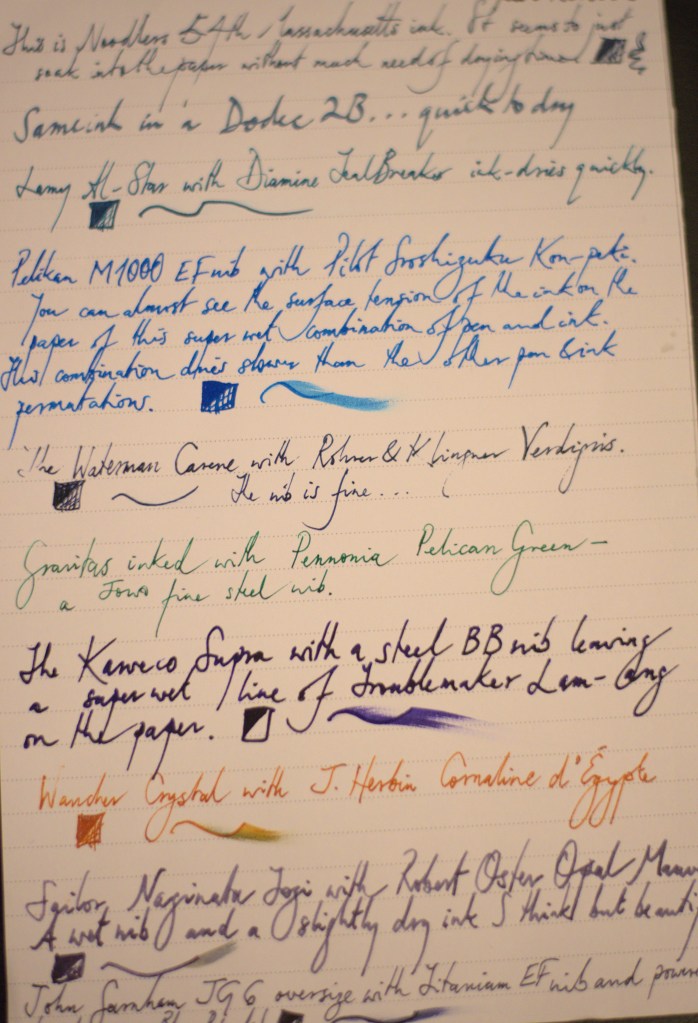 This is Noodlers 54th Massachusetts ink. It seems to just
soak into the paper without much need of drying time
Same ink in a Dodec 2B... quick to dry
Lamy Al-Star with Diamine Teal Breaker ink-dries quickly.
Pelikan M1000 EF nib with Pilot Iroshizuku Kon-peki.
You can almost see the surface tension of the ink on the
paper of this super wet combination of pen and ink.
This combination dries slower than the other pen & ink
permutations.
The Waterman Carene with Rohrer & Klingner Verdigris.
The nib is fine...
Gravitas inked with Pennonia Pelican Green-
a Jowo fine steel nib.
The Kaweco Supra with a steel BB nib leaving
a super wet line of Troublemaker Lam-ang
on the paper.
Wancher Crystal with J. Herbin Cornaline d'Égypte
Sailor Naginata Togi with Robert Oster Opal Mauv
A wet nib and a slightly dry ink I think but beauti
John Garnham JG6 oversize with Titanium EF nib and